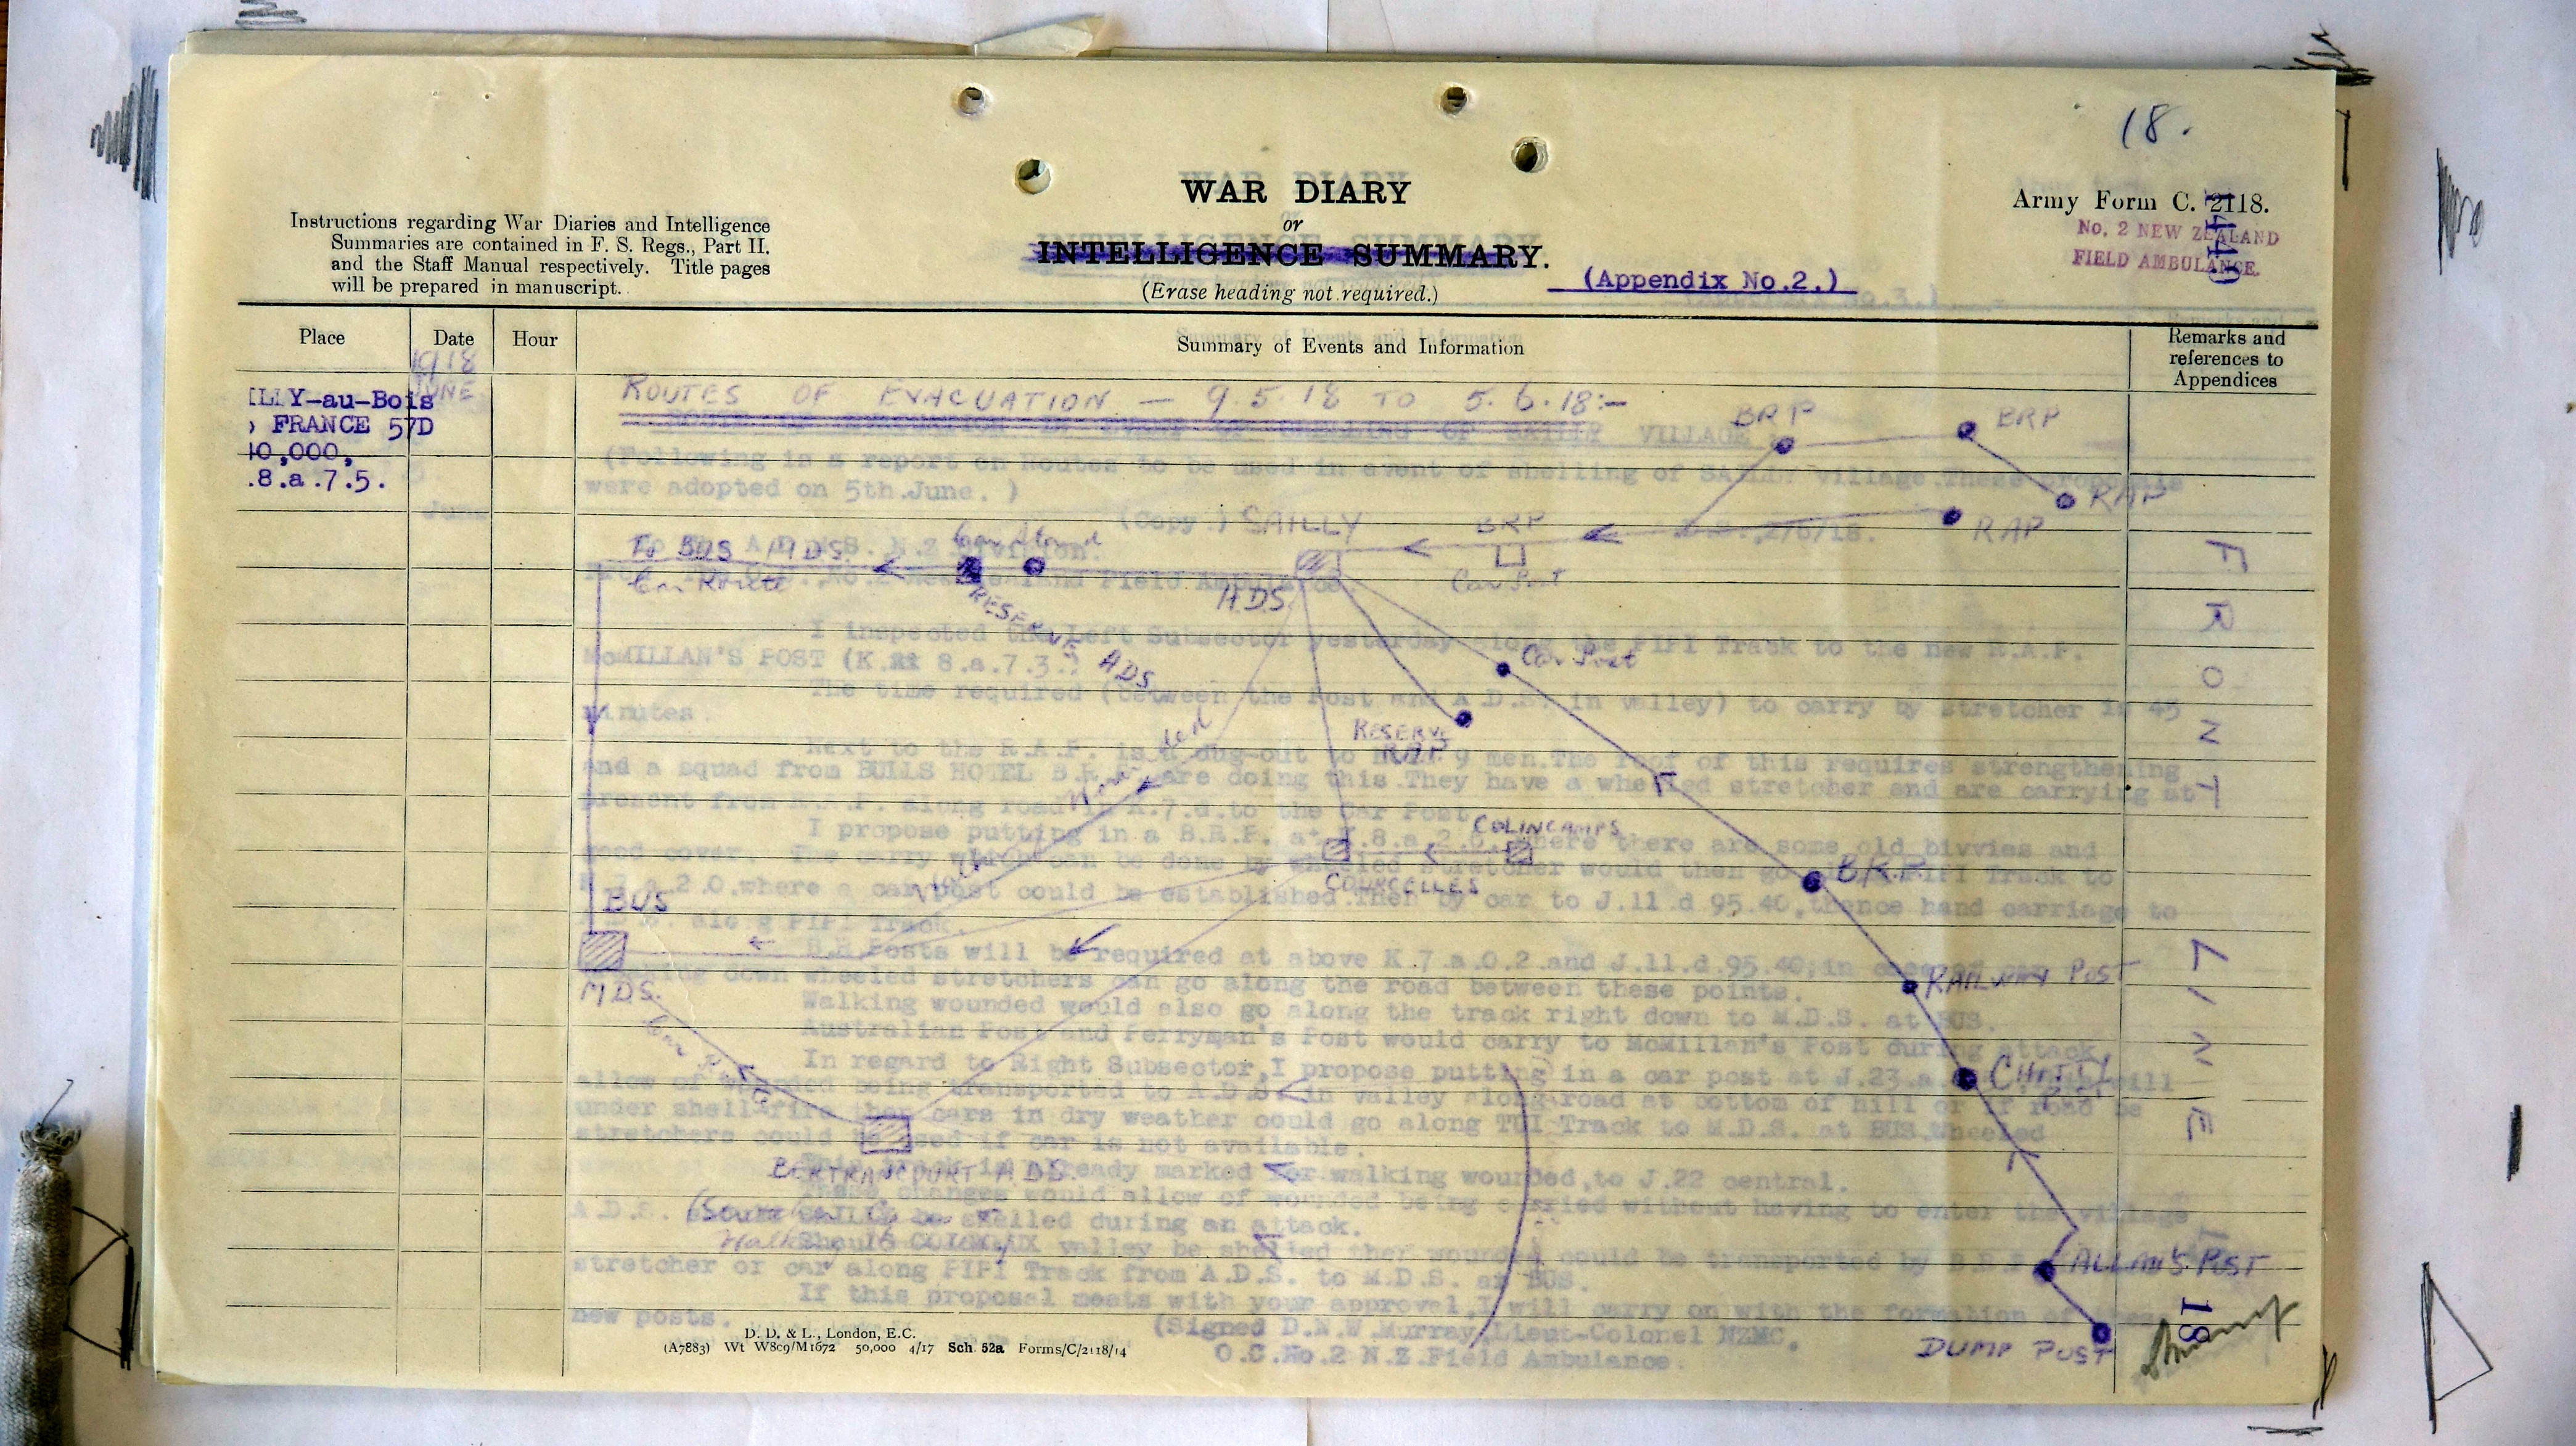 18.
WAR DIARY
or
INTELLIGENCE SUMMARY.
(Erase heading not required.)
(Appendix No.2.)
Instructions regarding War Diaries and Intelligence
Summaries are contained in F. S. Regs., Part II.
and the Staff Manual respectively. Title pages
will be prepared in manuscript.
Army Form C. 2118.
No. 2 NEW ZEALAND
FIELD AMBULANCE.
Place
Date
Hour
Summary of Events and Information
Remarks and
references to
Appendices
1918
JUNE
LLY-au-Bois
FRANCE 57D
40,000,
.8.a.7.5.
ROUTES OF EVACUATION — 9.5.18 TO 5.6.18:-
BRP
BRP
RAP
RAP
SAILLY
BRP
Car Post
ADS
To BUS MDS.
Car Route
Car Stand
RESERVE ADS
Car Post
RESERVE
RAP
Walking Wounded
COLINCAMPS
COURCELLES
BRP
BUS
MDS.
RAILWAY POST
Car Route
CHITTY
BERTRANCOURT ADS.
ALLAN'S POST
DUMP POST
FRONT LINE
18
(Following is a report on routes to be used in event of shelling of SAILLY village. These proposals
were adopted on 5th.June. )
(Copy.)
2/6/18.
I inspected the Left Subsector yesterday along the FIFI Track to the new R.A.P.
McMILLAN'S POST (K. 8.a.7.3.)
The time required (between the Post and A.D.S. in valley) to carry by stretcher is 45
minutes.
Next to the R.A.P. is a dug-out to hold 9 men.The roof of this requires strengthening
and a squad from BULLS HOTEL B.R.P. are doing this.They have a wheeled stretcher and are carrying at
present from R.A.P. along road in K.7.d.to the Car Post.
I propose putting in a B.R.P. at K.8.a.2.6. where there are some old bivvies and
good cover. The carry which can be done by wheeled stretcher would then go FIFI Track to
2.0.where a car post could be established.Then by car to J.11.d 95.40,thence hand carriage to
along FIFI Track.
B.R.Posts will be required at above K.7.a.0.2.and J.11.d.95.40;in
down wheeled stretchers can go along the road between these points.
Walking wounded would also go along the track right down to M.D.S. at BUS.
Australian Post and Ferryman's Post would carry to McMillan's Post during attack.
In regard to Right Subsector,I propose putting in a car post at J.23.a. will
allow of wounded being transported to A.D.S. in valley along road at bottom of hill or if road be
under shell-fire then cars in dry weather could go along TUI Track to M.D.S. at BUS.Wheeled
stretchers could be used if car is not available.
This track is already marked for walking wounded,to J.22 central.
These changes would allow of wounded being carried without having to enter the village
A.D.S. SAILLY be shelled during an attack.
Should valley be shelled then wounded could be transported by
stretcher or car along FIFI Track from A.D.S. to M.D.S. at BUS.
If this proposal meets with your approval,I will carry on with the formation of these
new posts.
(Signed D.N.W.Murray,Lieut-Colonel NZMC.
O.C.No.2 N.Z.Field Ambulance.
D. D. & L., London, E.C.
(A7883) Wt W809/M1672 50,000 4/17 Sch. 52a Forms/C/2118/14